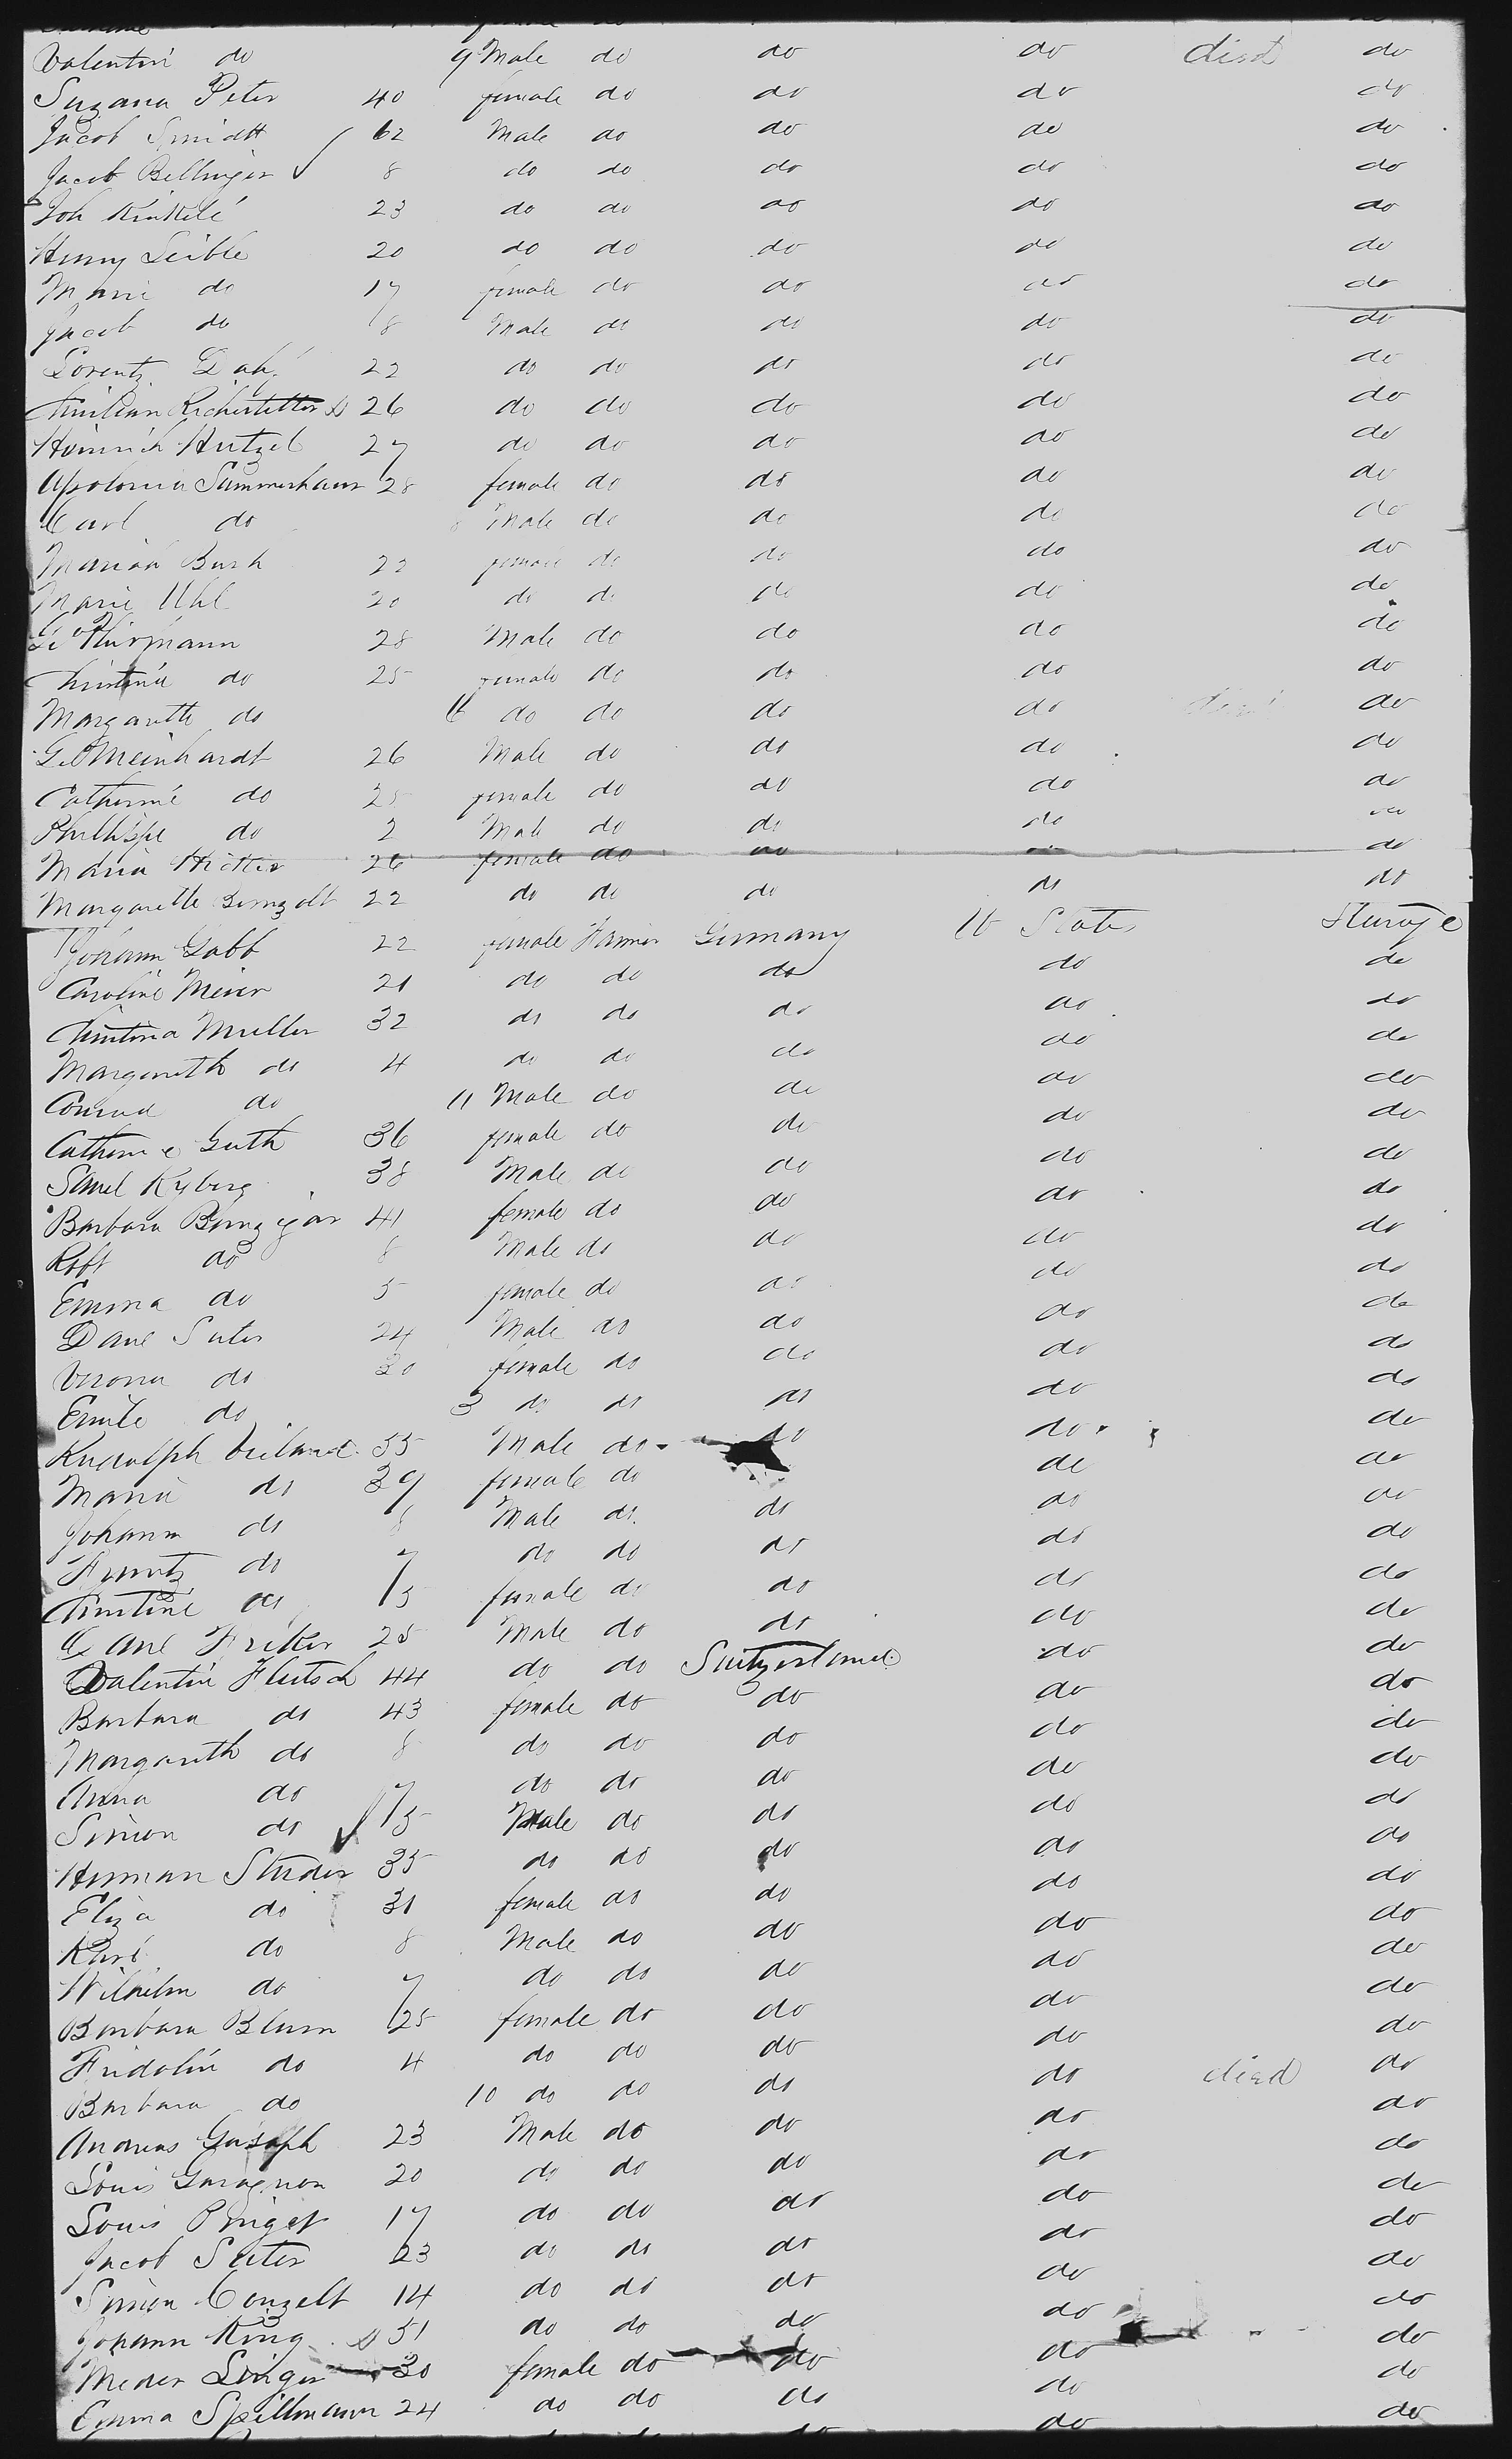 Valentin do 9 Male do do do died do
Suzana Peter 40 female do do do do
Jacob Smidtt 62 Male do do do do
Jacob Bellinger 8 do do do do do
Joh Kinkele 23 do do do do do
Henry Leible 20 do do do do do
Marie do 17 female do do do do
Jacob do 8 Male do do do do
Lorentz 22 do do do do do
26 do do do do do
Heinrich Hutzel 27 do do do do do
Apolonia Sammerhaus 28 female do do do do
Carl do 8 Male do do do do
Mariah Bush 22 female do do do do
Marie Uhl 20 do do do do do
Geo 28 Male do do do do
Christine do 25 female do do do do
Margareth do 6 do do do do died do
G. Meinhardt 26 Male do do do do
Catherine do 25 female do do do do
Phillippe do 2 Male do do do do
Maria 26 female do do do do
Margarette 22 do do do do do
Johann Gabb 22 female Farmer Germany U States Sterage
Caroline Meier 21 do do do do do
Christina Muller 32 do do do do do
Margareth do 4 do do do do do
Conrad do 11 Male do do do do
Catherine Guth 36 female do do do do
Saml Kyburg 38 Male do do do do
Barbara Banziger 41 female do do do do
Robt do 8 Male do do do do
Emma do 5 female do do do do
Danl Suter 24 Male do do do do
Verona do 30 female do do do do
Emile do 3 do do do do do
Rudolph Vieland 35 Male do do do do
Maria do 39 female do do do
Johann do 8 Male do do do do
Frantz do 7 do do do do do
Christine do 5 female do do do do
Carl Friker 25 Male do do do do
Valentin Flutsch 44 do do Switzerland do do
Barbara do 43 female do do do do
Margareth do 8 do do do do do
Anna do 7 do do do do do
Simon do 5 Male do do do do
Herman Studer 35 do do do do do
Eliza do 31 female do do do do
Karl do 8 Male do do do do
Wilhelm do 7 do do do do do
Barbara Blum 25 female do do do do
Fridolin do 4 do do do do do
Barbara do 10 do do do do died do
Andreas 23 Male do do do do
Louis Garagnon 20 do do do do do
Louis Pinget 17 do do do do do
Jacob Suter 23 do do do do do
Simon Conzelt 14 do do do do do
Johann King 51 do do do do do
Singer 30 female do do do do
Emma Spillmann 24 do do do do do